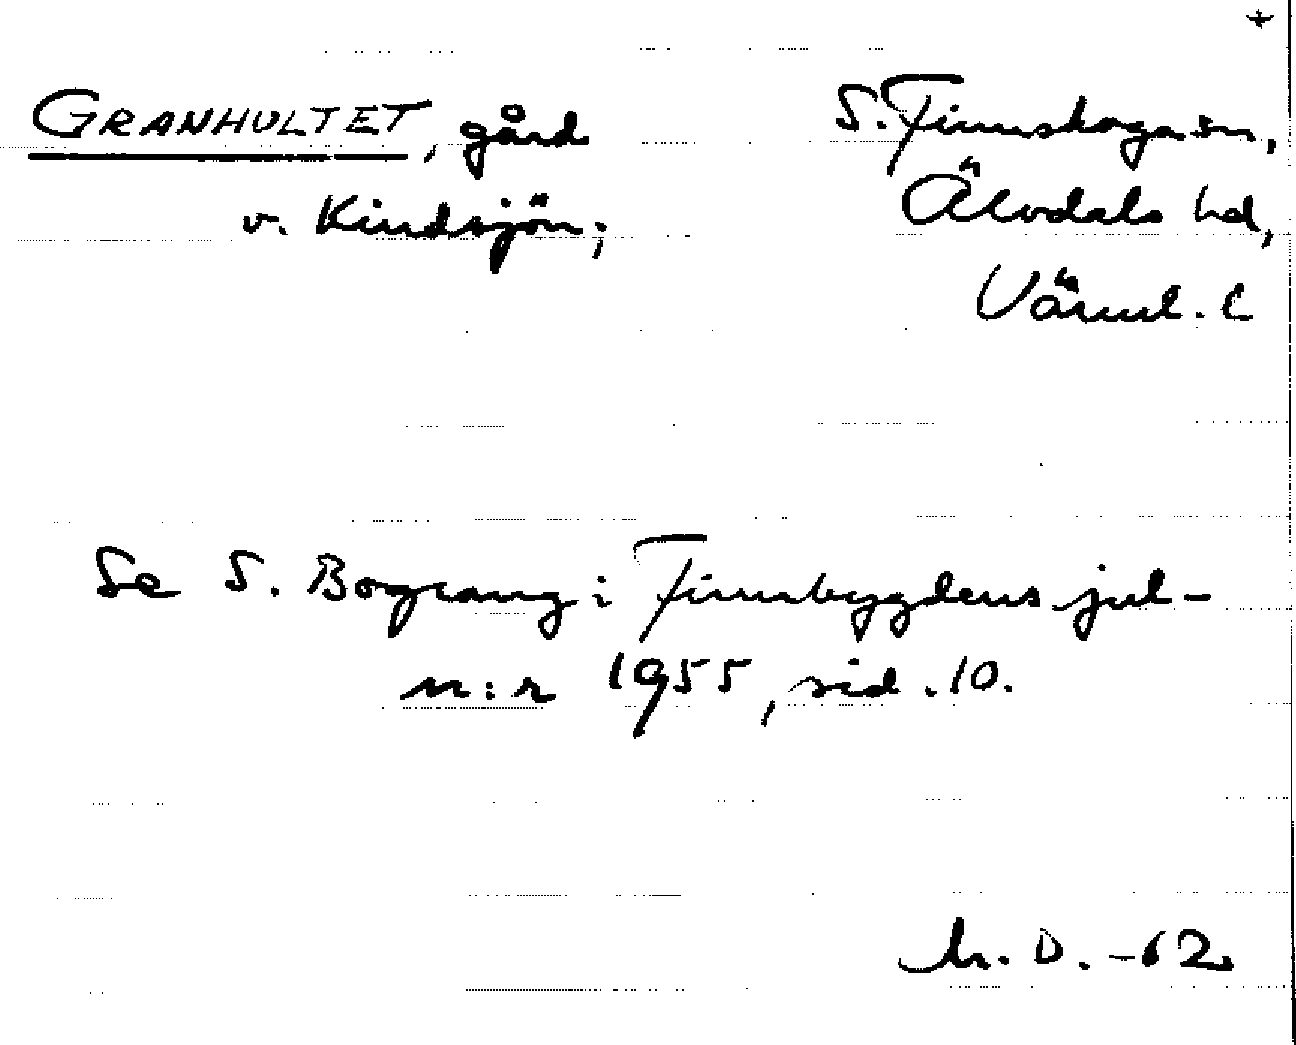 GRANHULTET, gård
v. Kindsjön;
S. Finnskoga sn,
Älvdals hd,
Värml. l
Se S. Bograng i Finnbygdens jul-
n:r 1955, sid. 10.
M. D. -62